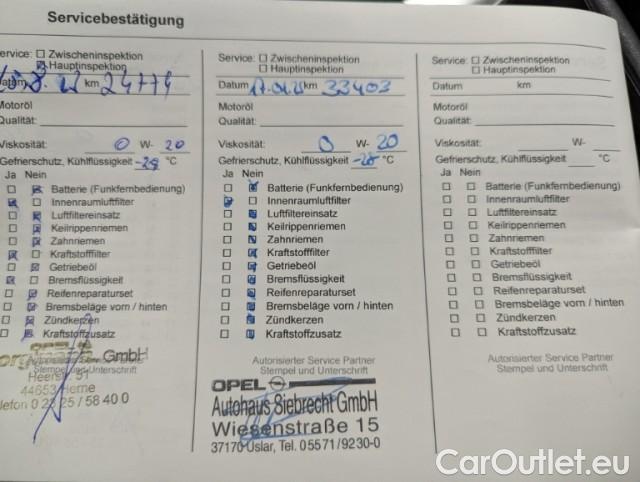 Servicebestätigung
ervice: Zwischeninspektion
Hauptinspektion
km 24774
Motoröl
Qualität:
Viskosität: 0 W- 20
Gefrierschutz, Kühlflüssigkeit -28 °C
Ja Nein
Batterie (Funkfernbedienung)
Innenraumluftfilter
Luftfiltereinsatz
Keilrippenriemen
Zahnriemen
Kraftstofffilter
Getriebeöl
Bremsflüssigkeit
Reifenreparaturset
Bremsbeläge vorn / hinten
Zündkerzen
Kraftstoffzusatz
Stempel und Unterschrift
GmbH
Heerstr. 51
44653 Herne
elefon 0 23 25 / 58 40 0
Service: Zwischeninspektion
Hauptinspektion
Datum km 33403
Motoröl
Qualität:
Viskosität: 0 W- 20
Gefrierschutz, Kühlflüssigkeit -28 °C
Ja Nein
Batterie (Funkfernbedienung)
Innenraumluftfilter
Luftfiltereinsatz
Keilrippenriemen
Zahnriemen
Kraftstofffilter
Getriebeöl
Bremsflüssigkeit
Reifenreparaturset
Bremsbeläge vorn / hinten
Zündkerzen
Kraftstoffzusatz
Autorisierter Service Partner
Stempel und Unterschrift
OPEL
Autohaus Siebrecht GmbH
Wiesenstraße 15
37170 Uslar, Tel. 05571/9230-0
Service: Zwischeninspektion
Hauptinspektion
Datum km
Motoröl
Qualität:
Viskosität: W-
Gefrierschutz, Kühlflüssigkeit °C
Ja Nein
Batterie (Funkfernbedienung)
Innenraumluftfilter
Luftfiltereinsatz
Keilrippenriemen
Zahnriemen
Kraftstofffilter
Getriebeöl
Bremsflüssigkeit
Reifenreparaturset
Bremsbeläge vorn / hinten
Zündkerzen
Kraftstoffzusatz
Autorisierter Service Partner
Stempel und Unterschrift
CarOutlet.eu